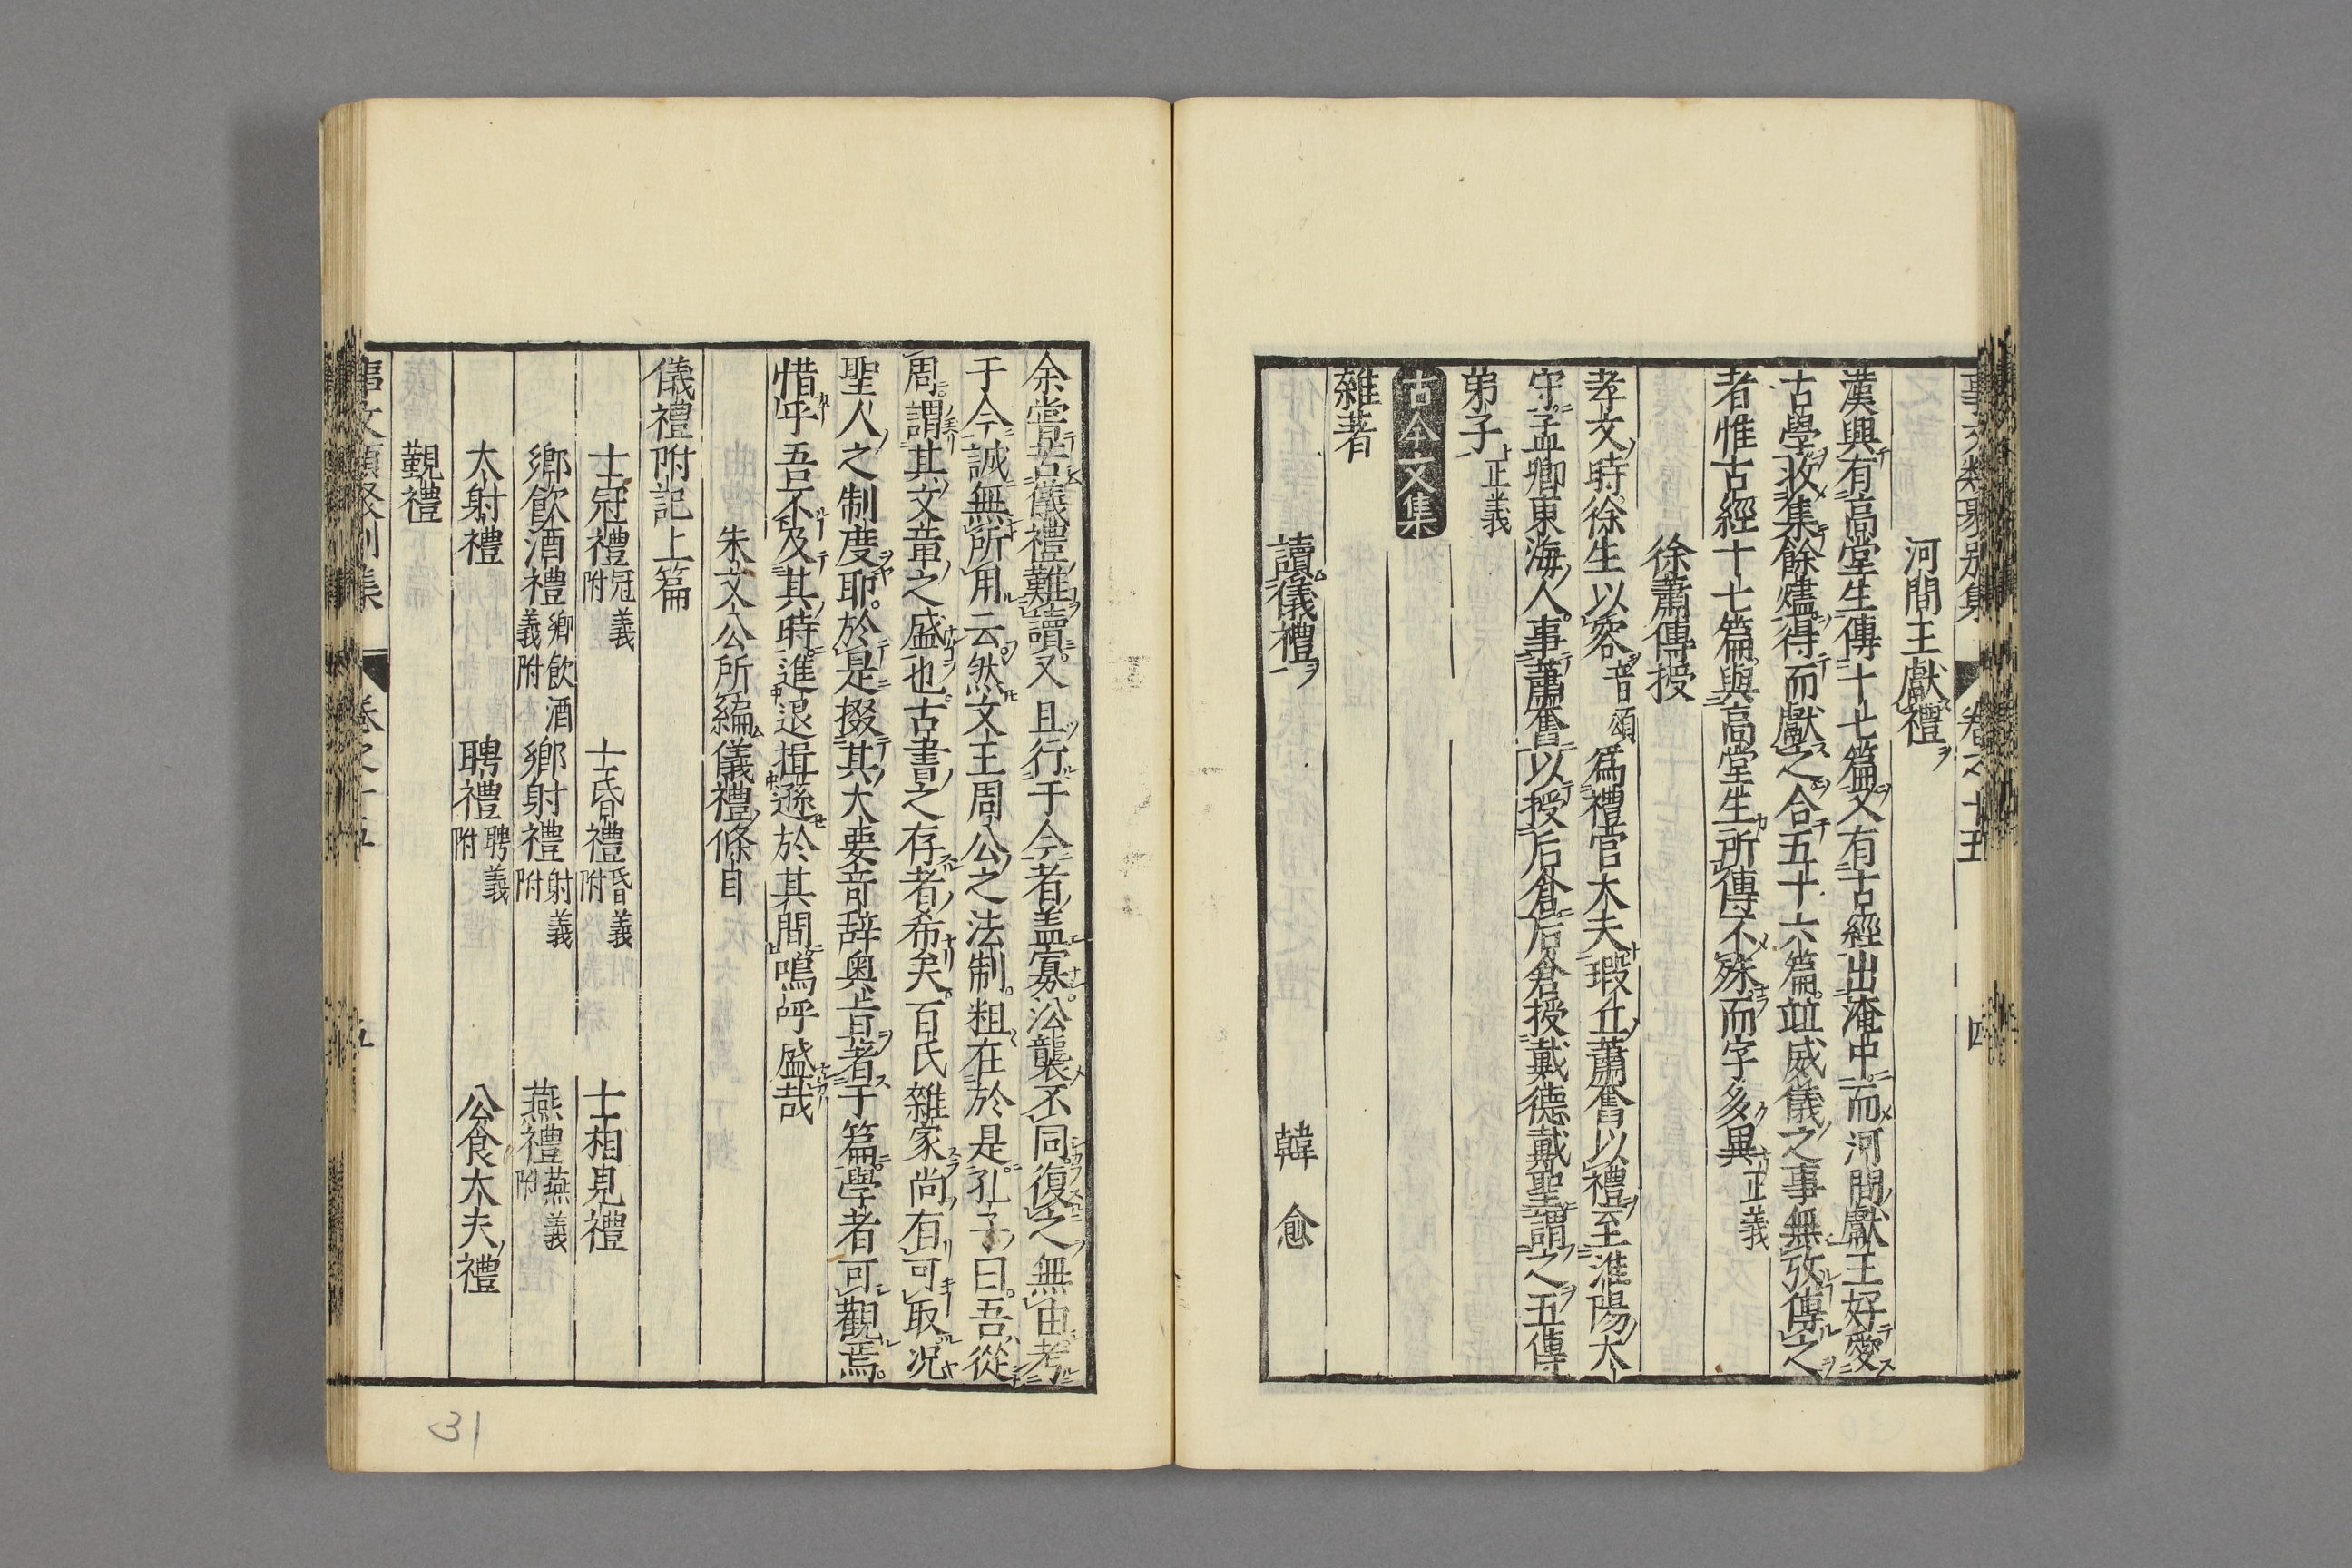 事文類聚別集 卷之十五 四
河間王獻禮
漢興有高堂生傳十七篇又有古經出淹中而河間獻王好愛
古學收集餘燼得而獻之合五十六篇竝威儀之事無敢傳之
者惟古經十七篇與高堂生所傳不殊而字多異正義
徐蕭傳授
孝文時徐生以容音頌爲禮官大夫瑕丘蕭奮以禮至淮陽太
守孟卿東海人事蕭奮以授后倉后倉授戴德戴聖謂之五傳
弟子正義
古今文集
雜著
讀儀禮 韓愈
余嘗苦儀禮難讀又且行于今者盖寡沿襲不同復之無由考
于今誠無所用云然文王周公之法制粗在於是孔子曰吾從
周謂其文章之盛也古書之存者希矣百氏雜家尚有可取况
聖人之制度耶於是掇其大要奇辞奥旨著于篇學者可觀焉
惜乎吾不及其時進退揖遜於其間嗚呼盛哉
朱文公所編儀禮條目
儀禮附記上篇
士冠禮冠義附 士昏禮昏義附 士相見禮
鄉飲酒禮鄉飲酒義附 鄉射禮射義附 燕禮燕義附
大射禮 聘禮聘義附 公食大夫禮
覲禮
事文類聚別集 卷之十五 五
31